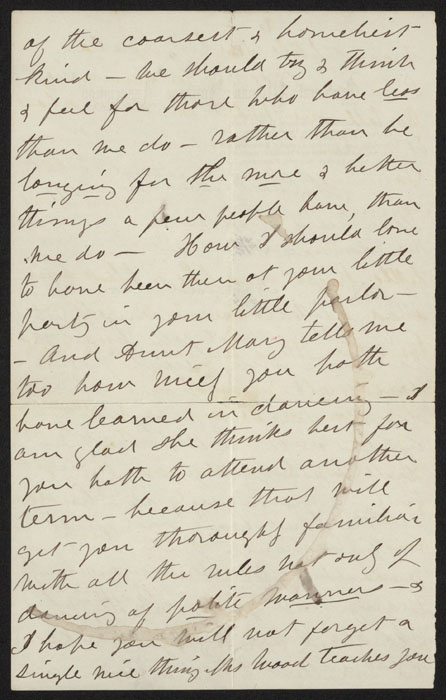 of the coarsest & homeliest
kind - We should try & think
& feel for those who have less
than we do - rather than be
longing for the more & better
things a few people have, than
we do - How I should love
to have been there at your little
party in your little parlor -
- And Aunt Mary tells me
too how nicely you both
have learned in dancing - I
am glad she thinks best for
you both to attend another
term - because that will
get you thoroughly familiar
with all the rules not only of
dancing of polite manners - &
I hope you will not forget a
single nice thing Mrs Wood teaches you